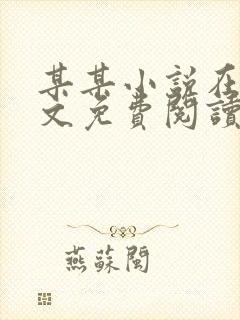 某某小说在
文免費閱讀
燕蘇閩